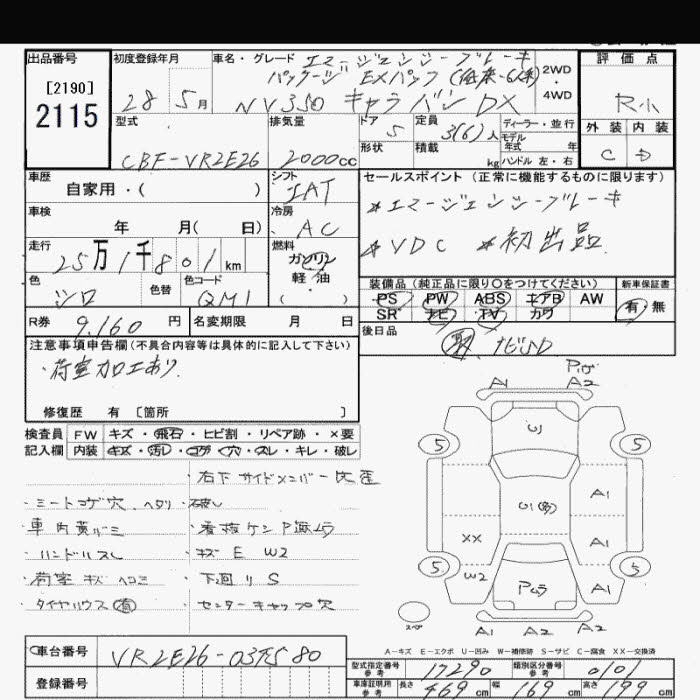 出品番号
[2190]
2115
初度登録年月
28年 5月
車名・グレード エマージェンシーブレーキ
パッケージ EXパック(低床・6人乗)
NV350 キャラバン DX
2WD
・
4WD
評価点
R小
外装 内装
C D
型式
CBF-VR2E26
排気量
2000cc
ドア
5
形状
定員
3(6)人
積載
kg
ディーラー・並行
モデル
年式 年
ハンドル 左・右
車歴
自家用・( )
シフト
IAT
車検
年 月( 日)
冷房
AC
走行
25万1千801km
燃料
ガソリン
軽油
・
( )
色
シロ
色替
色コード
QM1
R券 9,160 円
名変期限 月 日
セールスポイント(正常に機能するものに限ります)
*エマージェンシーブレーキ
*VDC *初出品
装備品(純正品に限り○をつけてください)
PS PW ABS エアB AW
SR ナビ TV カワ
新車保証書
有・無
後日品
ナビSD
注意事項申告欄(不具合内容等は具体的に記入して下さい)
・荷室加工あり
修復歴 有 [箇所 ]
検査員
記入欄
FW キズ・飛石・ヒビ割・リペア跡・×要
内装 キズ・汚レ・コゲ・穴・スレ・キレ・破レ
・右下サイドメンバー比歪
・シートコゲ穴 ヘタリ・破レ
・車内黄バミ
・ハンドルスレ
・キズ E W2
・荷室 キズ ヘコミ
・下廻り S
・タイヤハウス 有
・センターキャップ穴
A1 A2
5 5
U1
A1
XX A1
W2 A1
Pムラ
5 5
スペ
A1 A1 A2
A-キズ E-エクボ U-凹み W-補修跡 S-サビ C-腐食 XX-交換済
車台番号 VR2E26-037580
登録番号
型式指定番号
参考
17290
類別区分番号
参考
0101
車庫証明用
参考
長さ 469 cm 幅 169 cm 高さ 199 cm